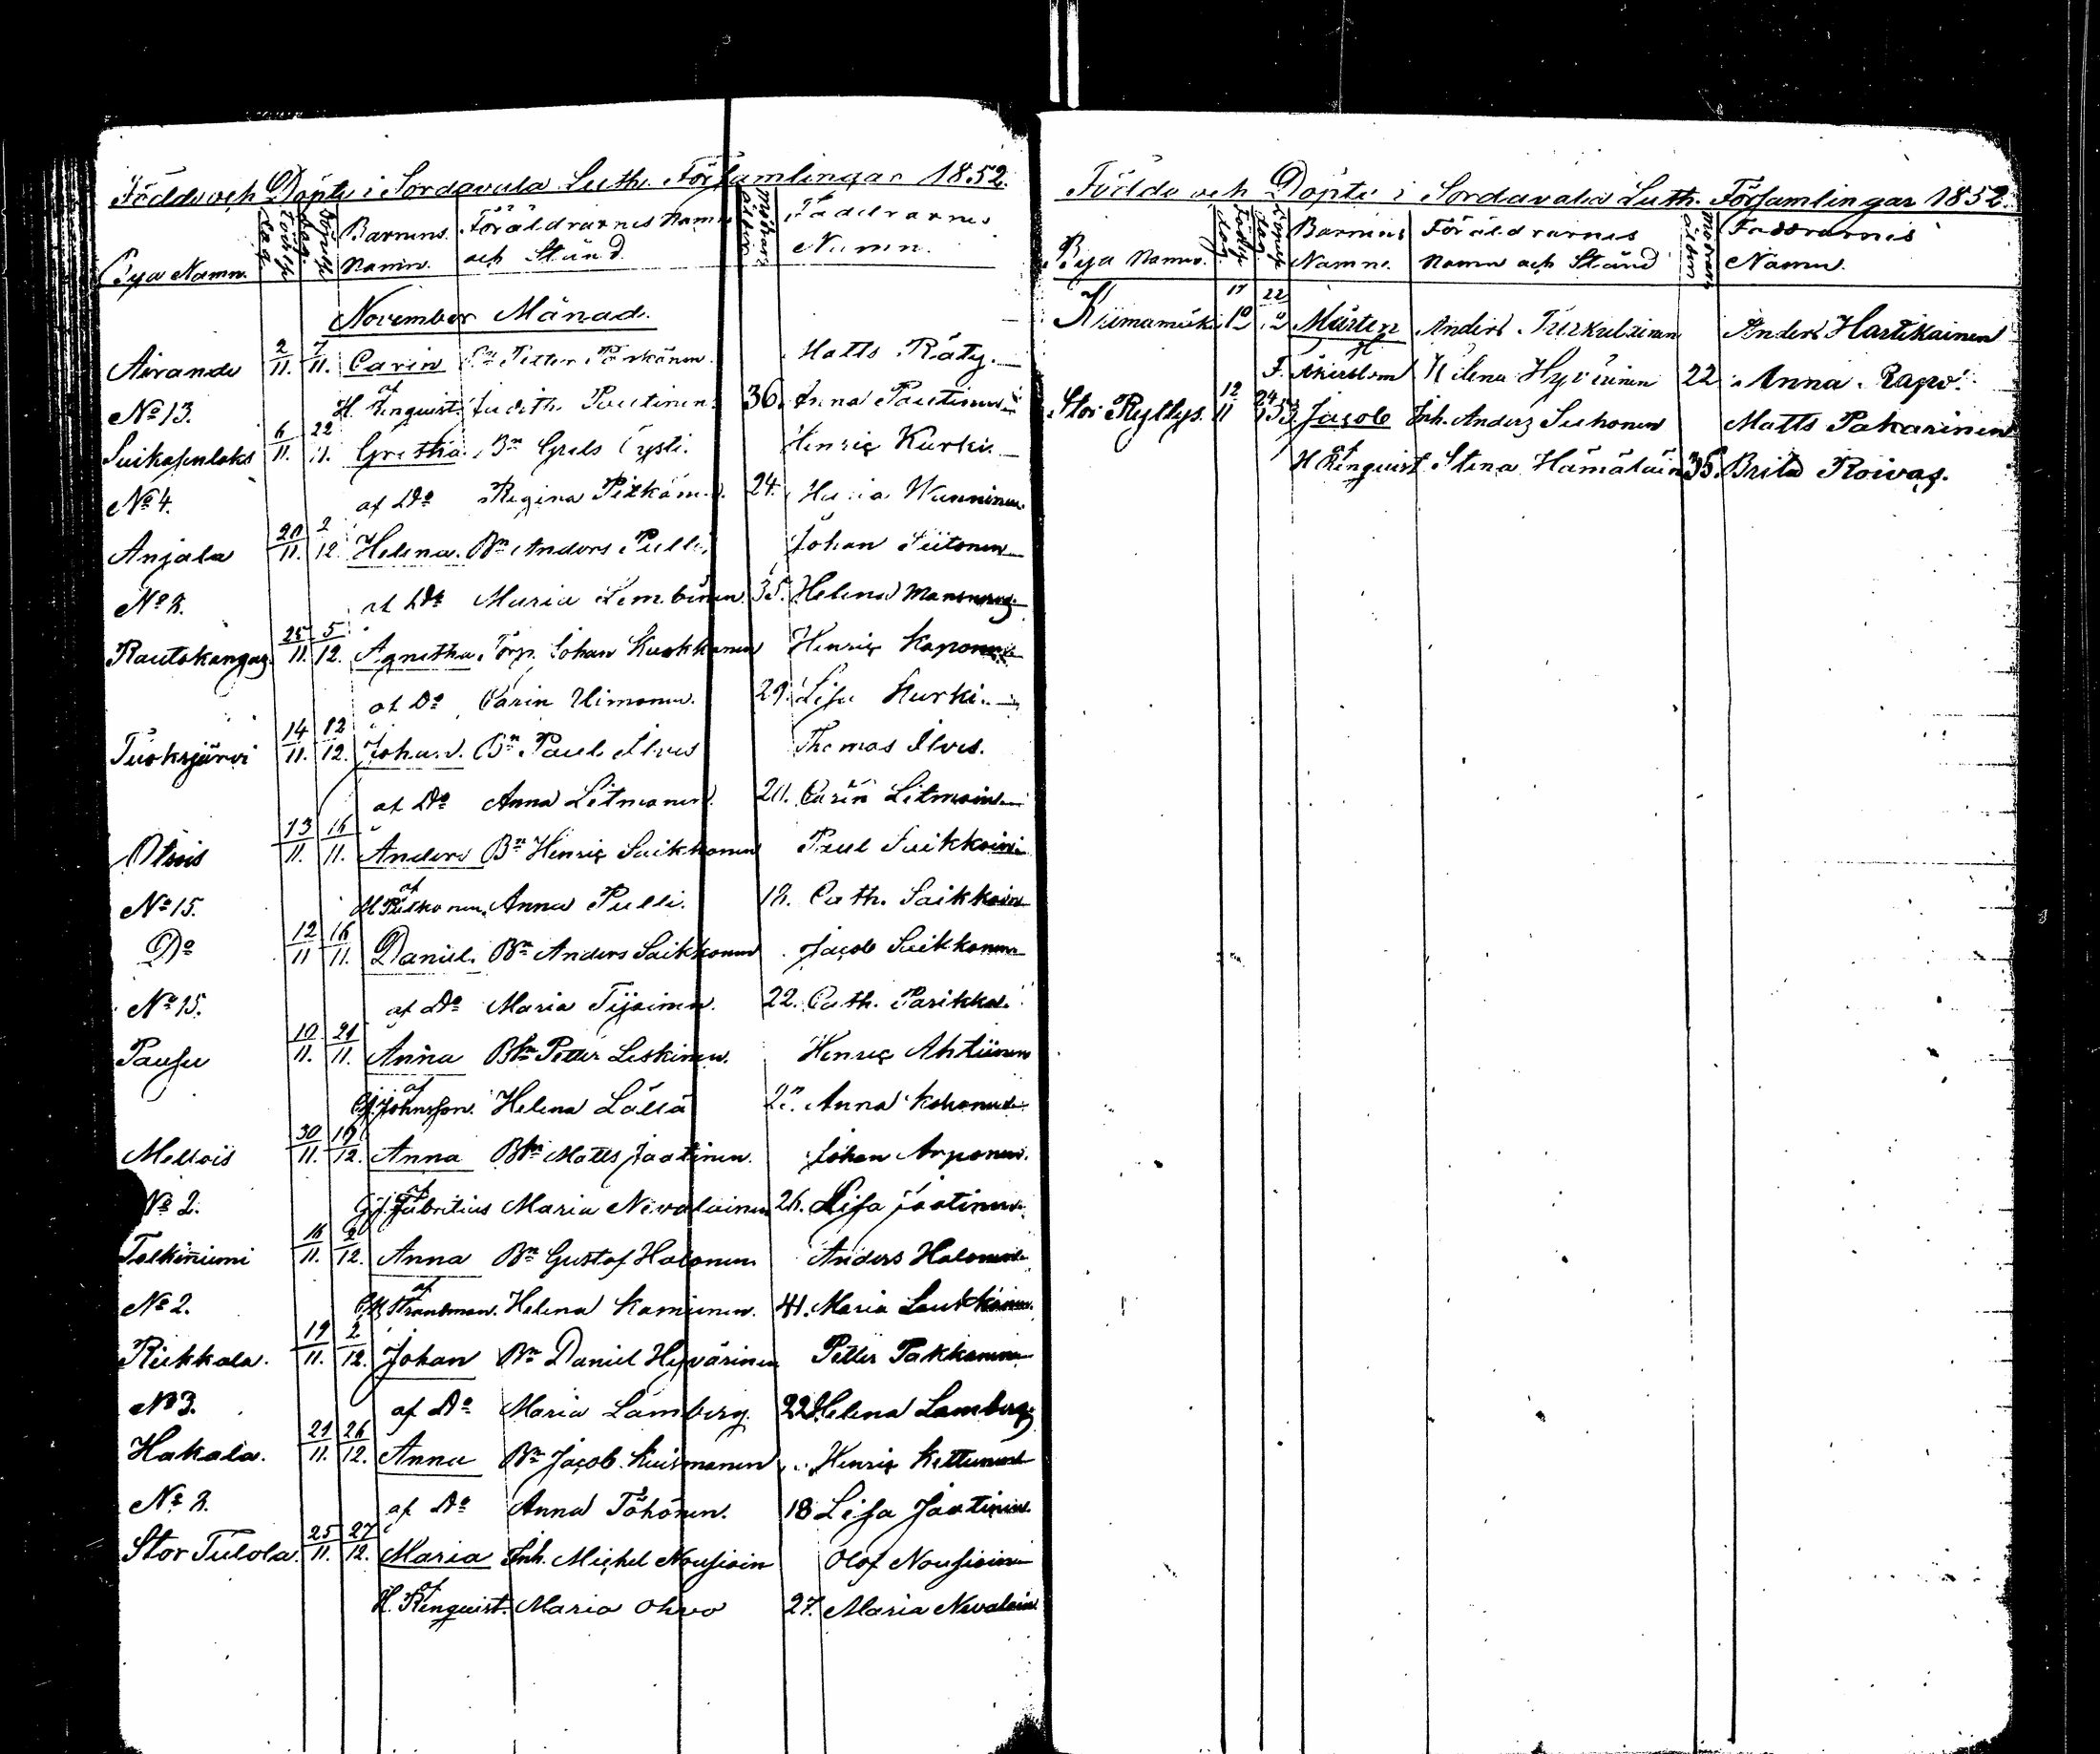 Födde och Döpte i Sordavala Luth. Församlingar 1852.
Bya Namn. Födelse dag. Döpelse dag Barnens Namn. Föräldrarnes Namn och Stånd Modrens ålder Faddrarnes Namn.
November Månad.
Airande 2/11. 7/11. Carin Bn Petter Matts Räty.
No 13. af H. Renquist. Judith Poutinen. 36. Anna Poutinen
6/11. 22/11. Gretha. Bn Grels Henric Kurki.
No 4. af Do Regina Pitkänen. 24. Maria Wänninen.
Anjala 20/11. 2/12. Helena. Bn Anders Pulli. Johan Siitonen
No 2. af Do Maria Lembinen. 35. Helena
Rautakangas. 25/11. 5/12. Agnetha. Torp. Johan Kuokkanen Henric Koponen
af Do Carin Uimonen. 29. Lisa Kurki.
Tuoksjärvi 14/11. 12/12. Johan. Bn Paul Ilves Thomas Ilves.
af Do Anna Litmanen. 20. Carin Litmain
Otsois 13/11. 16/11. Anders Bn Henric Suikkanen Paul Suikkain
No 15. af M. Putkonen. Anna Pulli. Cath. Saikkain
Do 12/11 16/11. Daniel. Bn Anders Saikkonen Jacob Suikkonen
No 15. af Do Maria Tijainen. 22. Cath. Parikka.
Pausu 10/11. 21/11. Anna Bn Petter Leskinen. Henric Ahtiinen
af Johnsson. Helena Lällä Anna Kohonen
Mellois 30/11. 19/12. Anna Bn Matts Jaatinen. Johan Arponen.
No 2. af G. J. Fabritius Maria Nevalainen 26. Lisa Jaatinen.
Tolkinniemi 16/11. 2/12. Anna Bn Gustaf Halonen Anders Halonen
No 2. af C. M. Strandman. Helena Kamunen. 41. Maria Laukkanen.
Riekkala. 19/11. 2/12. Johan Bn Daniel Hyvärinen Petter Pakkanen
No 3. af Do Maria Lamberg. 22. Helena Lamberg.
Hakala. 21/11. 26/12. Anna Bn Jacob Kuismanen Henric Kettunen
No 2. af Do Anna Töhönen. 18 Lisa Jaatinen.
Stor Tulola. 25/11. 27/12. Maria Inh. Michel Nousiain Olof Nousiain
af H. Renquist. Maria Ohvo 27. Maria Nevalain.
Födde och Döpte i Sordavala Luth. Församlingar 1852.
Bya Namn. Födelse dag. Döpelse dag. Barnens Namn. Föräldrarnes Namn och Stånd Modrens ålder Faddrarnes Namn.
Kiimamäki 17/10 22/12 Mårten Anders Turkulainen Anders Hartikainen
af F. Åkerblom Helena Hyvärinen 22. Anna Rapo.
Stor Rytlys. 12/11 24/53. Jacob Inh. Anders Suhonen Matts Pakarinen
af H Renquist Stina Hämäläin 35. Brita Roivas.